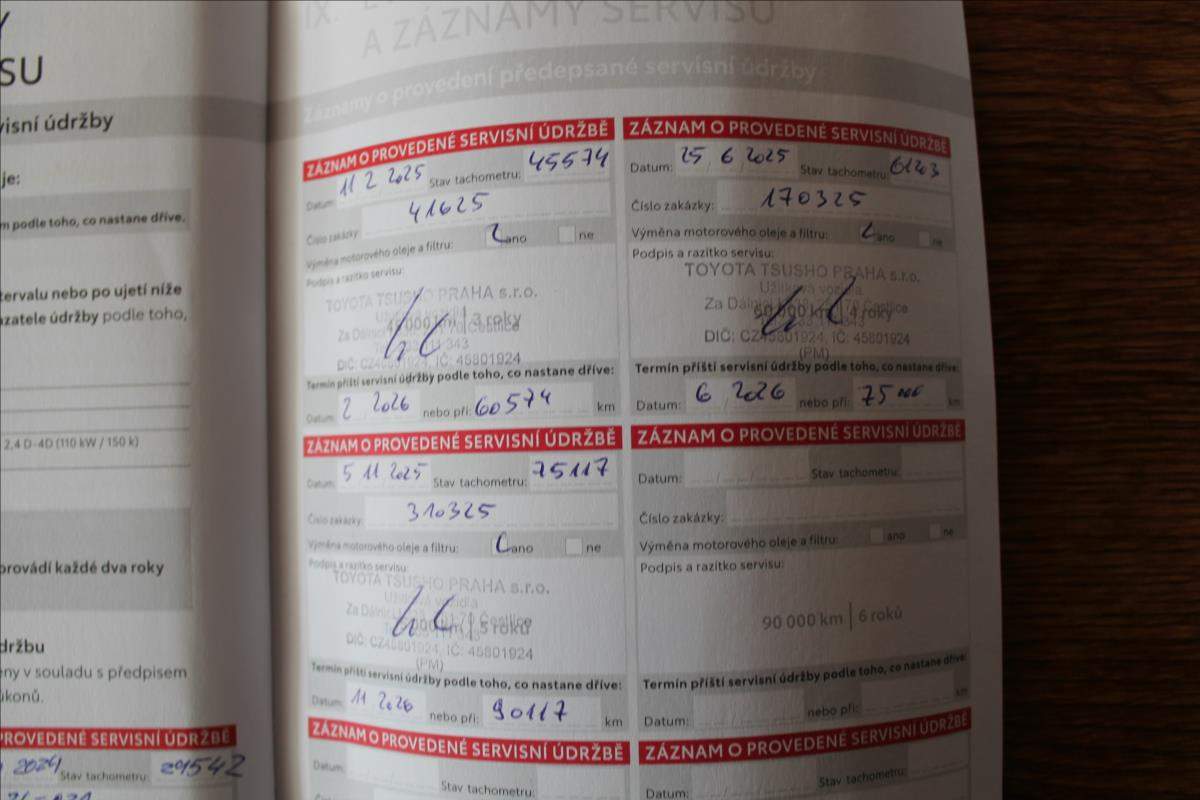 SU
visní údržby
je:
m podle toho, co nastane dříve.
tervalu nebo po ujetí níže
azatele údržby podle toho,
2.4 D-4D (110 kW / 150 k)
provádí každé dva roky
držbu
eny v souladu s předpisem
úkonů.
PROVEDENÉ SERVISNÍ ÚDRŽBĚ
2024 Stav tachometru: 29542
IX.
A ZÁZNAMY SERVISU
Záznamy o provedení předepsané servisní údržby
ZÁZNAM O PROVEDENÉ SERVISNÍ ÚDRŽBĚ
Datum: 11 2 2025 Stav tachometru: 45574
Číslo zakázky: 41625
Výměna motorového oleje a filtru: ano ne
Podpis a razítko servisu:
TOYOTA TSUSHO PRAHA s.r.o.
Za Dálnicí
45 000 km | 3 roky
DIČ: CZ45801924, IČ: 45801924
Termín příští servisní údržby podle toho, co nastane dříve:
Datum: 2 2026 nebo při: 60574 km
ZÁZNAM O PROVEDENÉ SERVISNÍ ÚDRŽBĚ
Datum: 25 6 2025 Stav tachometru: 61203
Číslo zakázky: 170325
Výměna motorového oleje a filtru: ano ne
Podpis a razítko servisu:
TOYOTA TSUSHO PRAHA s.r.o.
Užitková vozidla
Za Dálnicí Čestlice
60 000 km | 4 roky
DIČ: CZ45801924, IČ: 45801924
(PM)
Termín příští servisní údržby podle toho, co nastane dříve:
Datum: 6 2026 nebo při: 75 000 km
ZÁZNAM O PROVEDENÉ SERVISNÍ ÚDRŽBĚ
Datum: 5 11 2025 Stav tachometru: 75117
Číslo zakázky: 310325
Výměna motorového oleje a filtru: ano ne
Podpis a razítko servisu:
TOYOTA TSUSHO PRAHA s.r.o.
Užitková vozidla
Za Dálnicí Čestlice
75 000 km | 5 roků
DIČ: CZ45801924, IČ: 45801924
(PM)
Termín příští servisní údržby podle toho, co nastane dříve:
Datum: 11 2026 nebo při: 90117 km
ZÁZNAM O PROVEDENÉ SERVISNÍ ÚDRŽBĚ
Datum: Stav tachometru:
Číslo zakázky:
Výměna motorového oleje a filtru: ano ne
Podpis a razítko servisu:
90 000 km | 6 roků
Termín příští servisní údržby podle toho, co nastane dříve:
Datum: nebo při: km
ZÁZNAM O PROVEDENÉ SERVISNÍ ÚDRŽBĚ
Datum: Stav tachometru:
ZÁZNAM O PROVEDENÉ SERVISNÍ ÚDRŽBĚ
Datum: Stav tachometru: